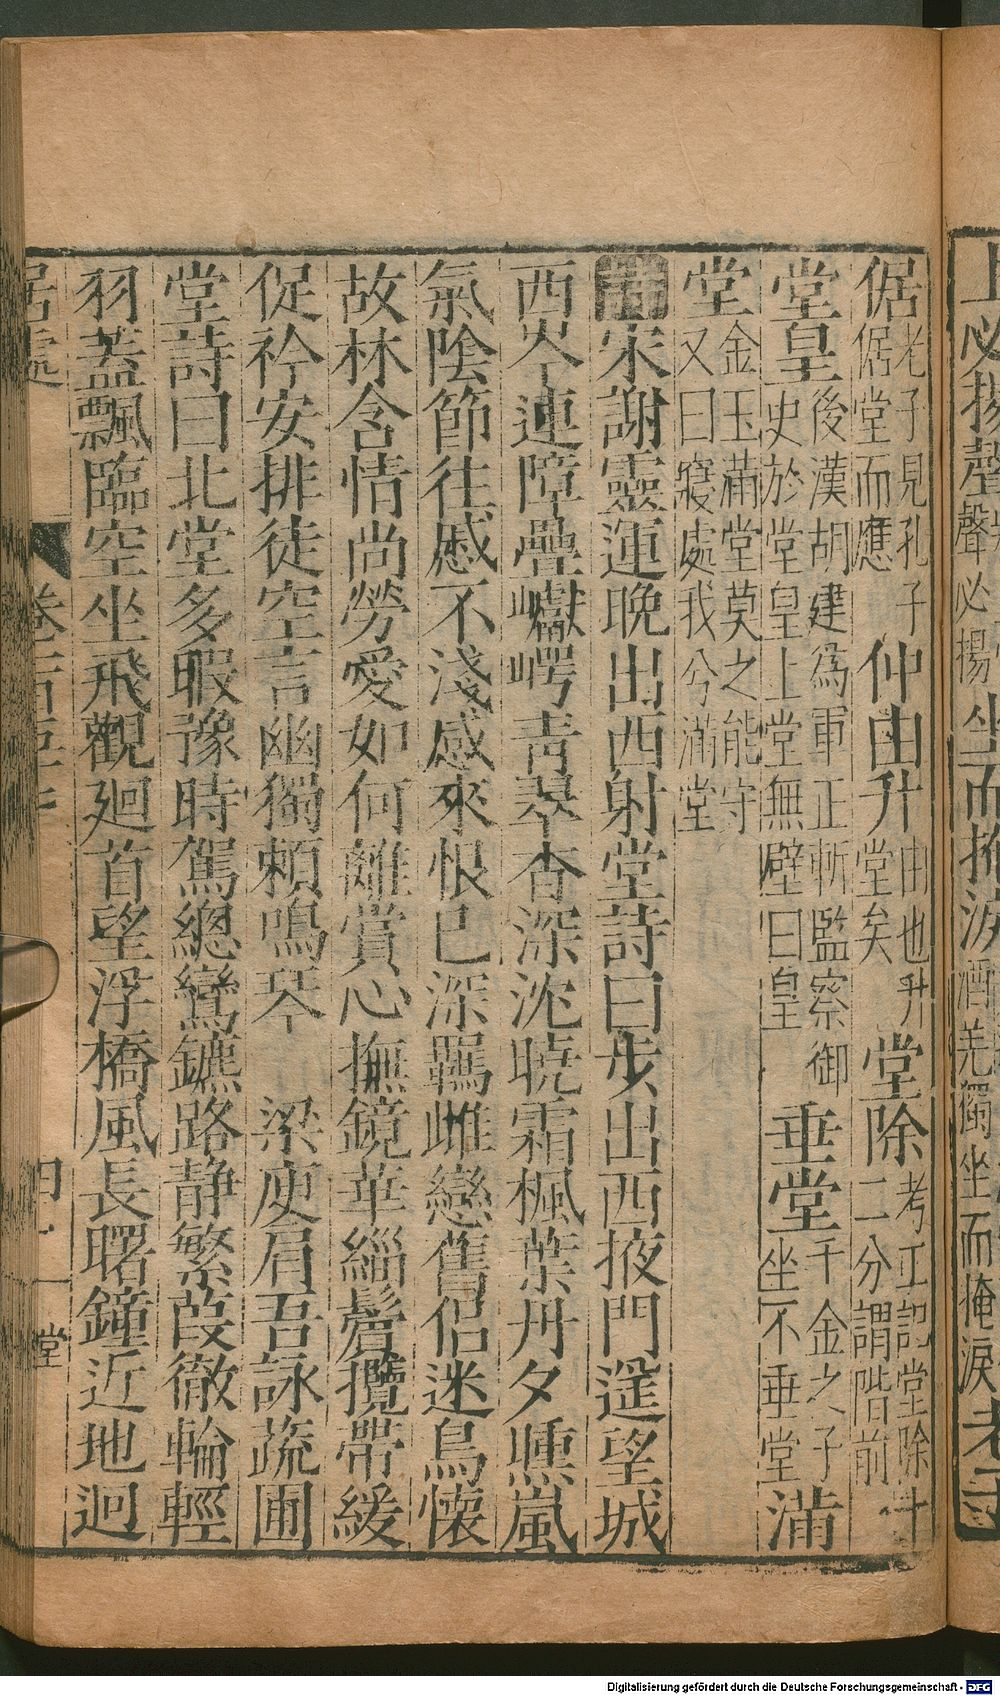 倨 老子見孔子倨堂而應 仲由升 由也升堂矣 堂除 考工記堂除十二分謂階前
堂皇 後漢胡建為軍正斬監察御史於堂皇上堂無壁曰皇 垂堂 千金之子坐不垂堂 滿
堂 金玉滿堂莫之能守又曰寢處我兮滿堂
宋謝靈運晚出西射堂詩曰步出西掖門遥望城
西岑連障疊巘崿青翠杳深沈曉霜楓葉丹夕曛嵐
氣陰節往慼不淺感來恨已深羈雌戀舊侶迷鳥懷
故林含情尚勞愛如何離賞心撫鏡華緇鬢攬帶緩
促衿安排徒空言幽獨頼鳴琴 梁庾肩吾詠疏圃
堂詩曰北堂多暇豫時駕總鸞鑣路静繁葭徹輪輕
羽蓋飄臨空坐飛觀廻首望浮橋風長曙鐘近地迥
居處 堂
上必揚聲 聲必揚 坐而掩淚 獨坐而掩淚
Digitalisierung gefördert durch die Deutsche Forschungsgemeinschaft - DFG